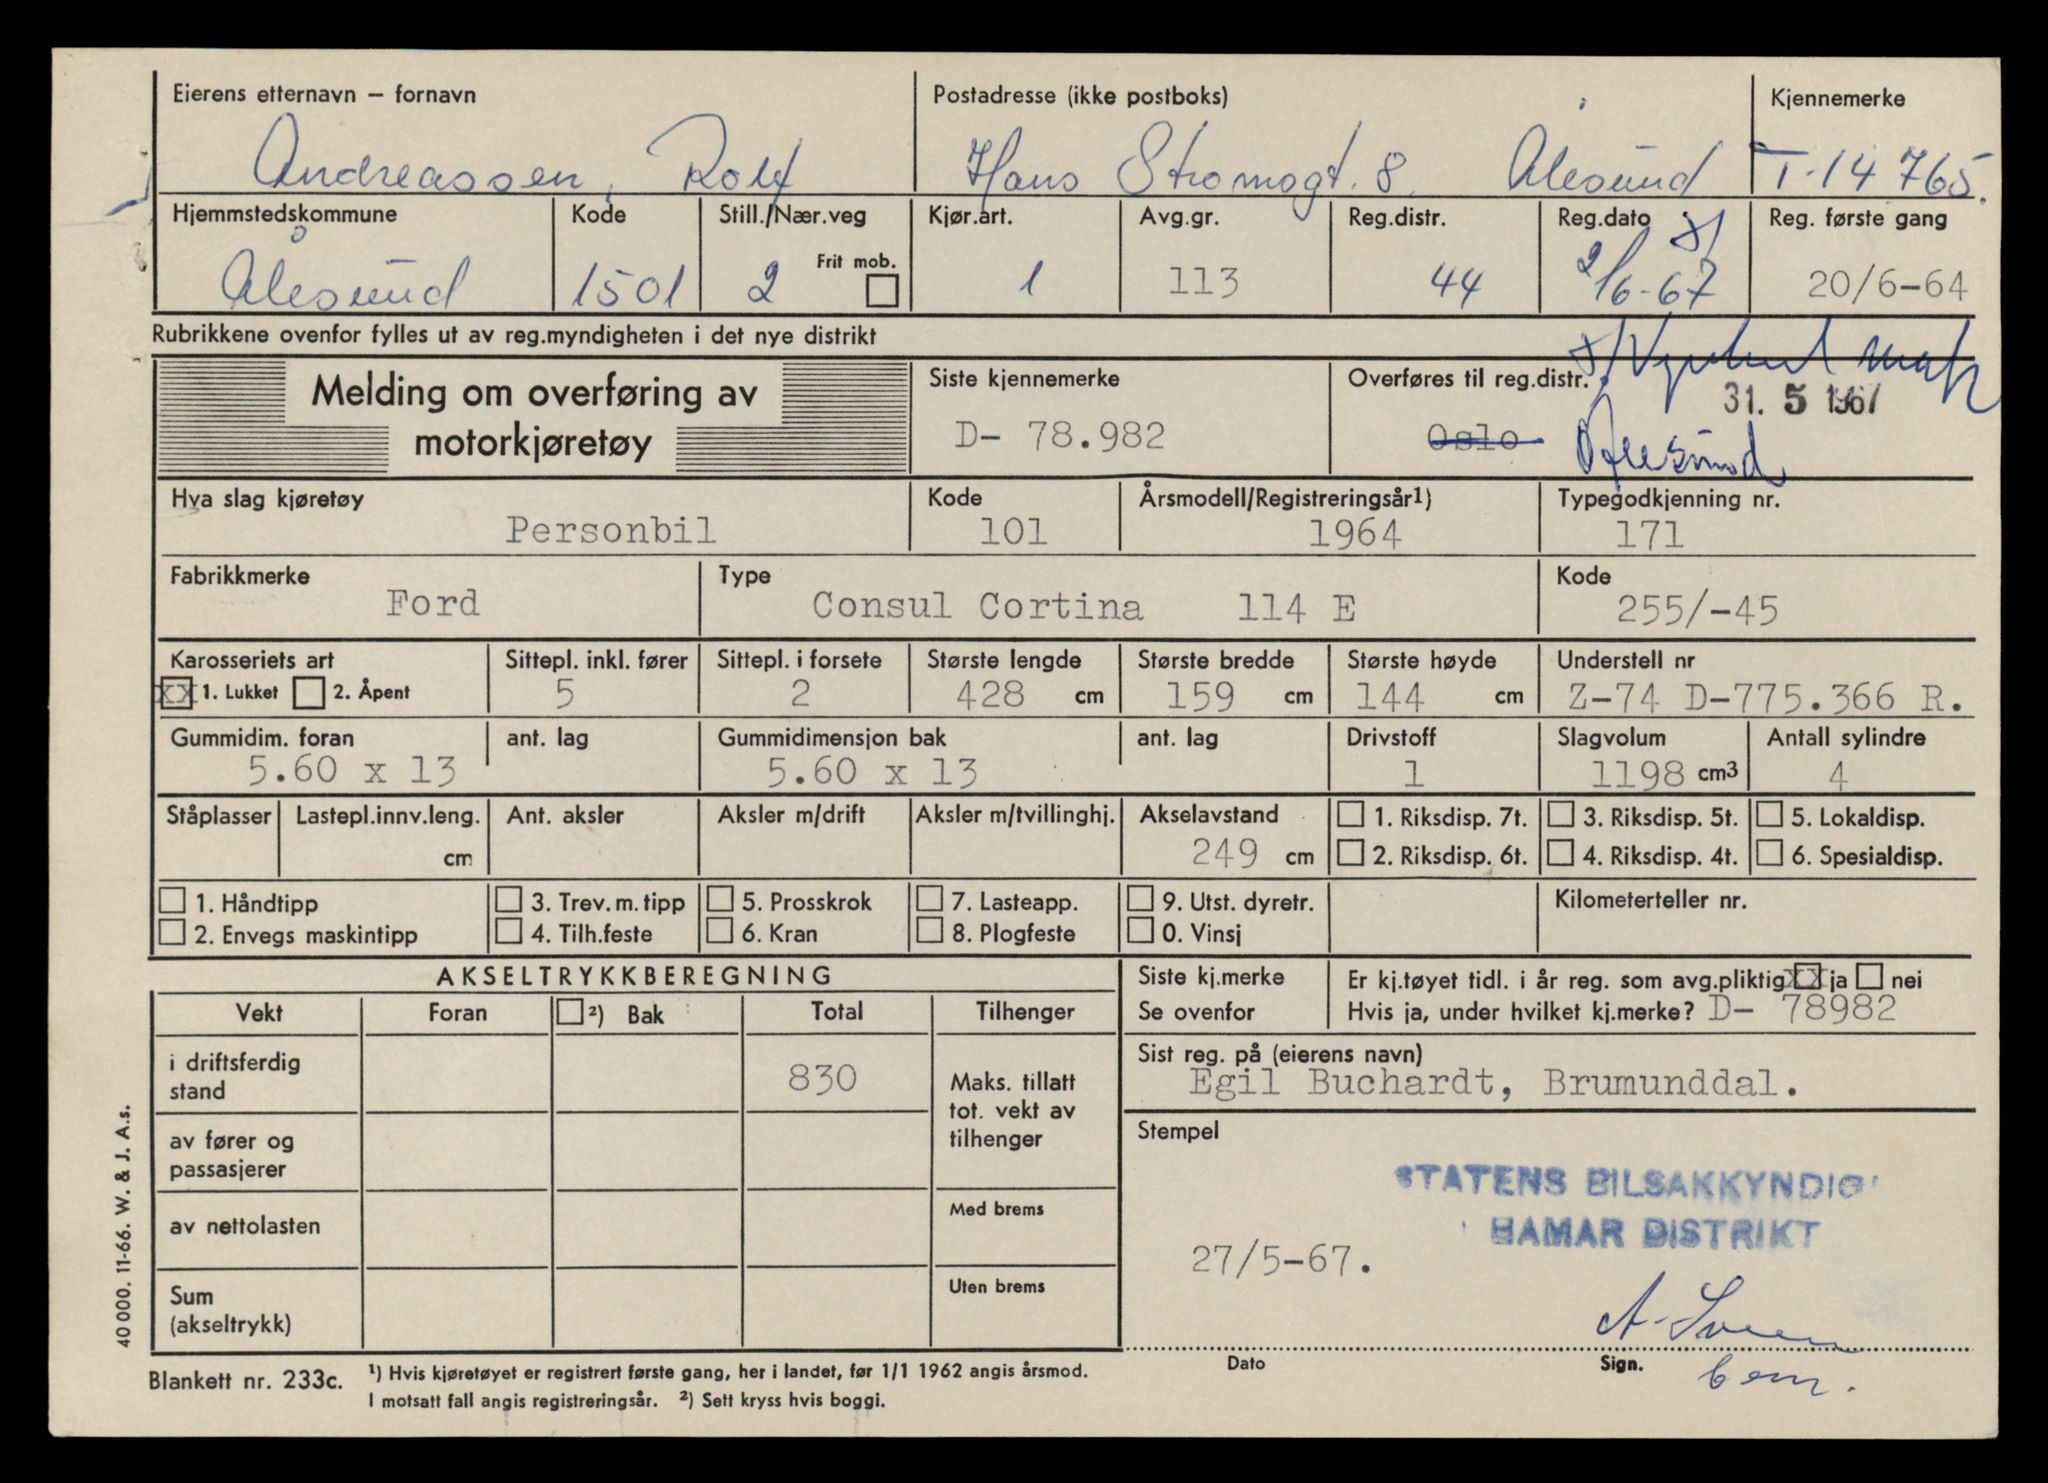 Eierens etternavn – fornavn Postadresse (ikke postboks) Kjennemerke
Andreassen, Rolf Hans Strømsgt. 8 Ålesund T-14765.
Hjemmstedskommune Kode Still./Nær.veg Kjør.art. Avg.gr. Reg.distr. Reg.dato Reg. første gang
Frit mob.
Ålesund 1501 2 1 113 44 2/6-67 20/6-64
Rubrikkene ovenfor fylles ut av reg.myndigheten i det nye distrikt
Melding om overføring av motorkjøretøy
Siste kjennemerke Overføres til reg.distr.
31. 5 1967
D- 78.982 Oslo Ålesund
Hva slag kjøretøy Kode Årsmodell/Registreringsår1) Typegodkjenning nr.
Personbil 101 1964 171
Fabrikkmerke Type Kode
Ford Consul Cortina 114 E 255/-45
Karosseriets art Sittepl. inkl. fører Sittepl. i forsete Største lengde Største bredde Største høyde Understell nr
xx 1. Lukket 2. Åpent 5 2 428 cm 159 cm 144 cm Z-74 D-775.366 R.
Gummidim. foran ant. lag Gummidimensjon bak ant. lag Drivstoff Slagvolum Antall sylindre
5.60 x 13 5.60 x 13 1 1198 cm3 4
Ståplasser Lastepl.innv.leng. Ant. aksler Aksler m/drift Aksler m/tvillinghj. Akselavstand 1. Riksdisp. 7t. 3. Riksdisp. 5t. 5. Lokaldisp.
cm 249 cm 2. Riksdisp. 6t. 4. Riksdisp. 4t. 6. Spesialdisp.
1. Håndtipp 3. Trev. m. tipp 5. Prosskrok 7. Lasteapp. 9. Utst. dyretr. Kilometerteller nr.
2. Envegs maskintipp 4. Tilh.feste 6. Kran 8. Plogfeste 0. Vinsj
AKSELTRYKKBEREGNING
Siste kj.merke Er kj.tøyet tidl. i år reg. som avg.pliktig xx ja nei
Se ovenfor Hvis ja, under hvilket kj.merke? D- 78982
Vekt Foran 2) Bak Total Tilhenger
i driftsferdig stand 830
Maks. tillatt tot. vekt av tilhenger
Sist reg. på (eierens navn)
Egil Buchardt, Brumunddal.
av fører og passasjerer
Stempel
STATENS BILSAKKYNDIG
HAMAR DISTRIKT
av nettolasten Med brems
27/5-67.
Sum (akseltrykk) Uten brems
Dato Sign.
40 000. 11-66. W. & J. A.s.
Blankett nr. 233c. 1) Hvis kjøretøyet er registrert første gang, her i landet, før 1/1 1962 angis årsmod.
I motsatt fall angis registreringsår. 2) Sett kryss hvis boggi.